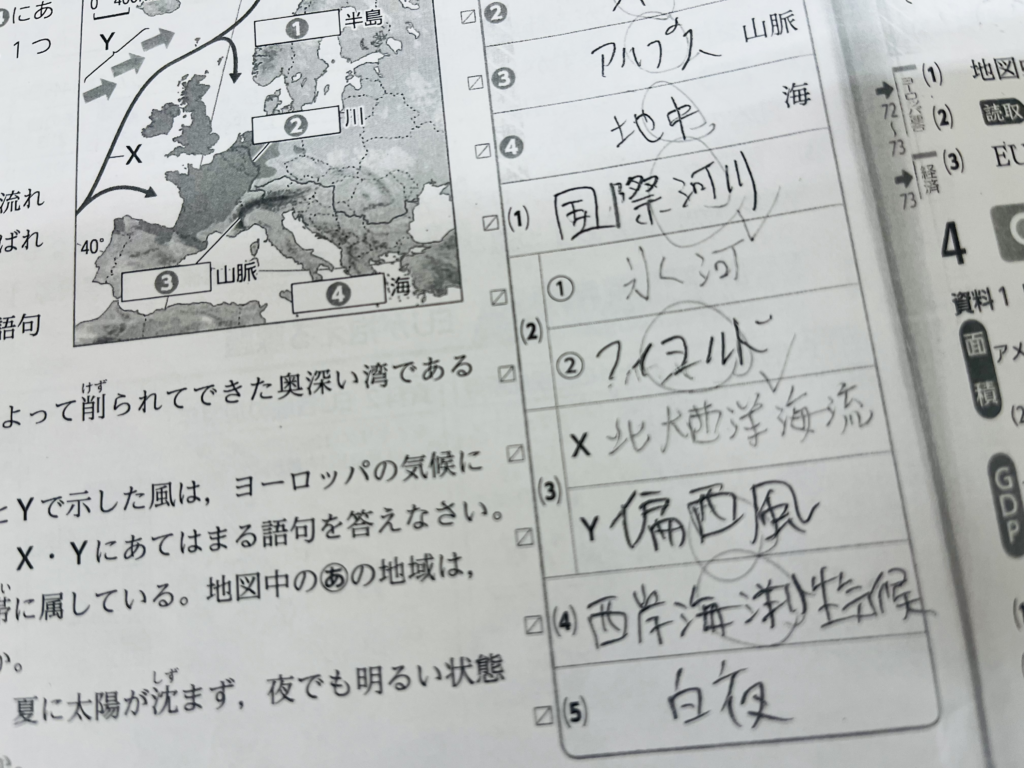 0 400
Y
X
❶ 半島
❷ 川
❸ 山脈
❹ 海
40°
あ
1つ
流れ
ばれ
語句
よって削られてできた奥深い湾である
けず
とYで示した風は，ヨーロッパの気候に
X・Yにあてはまる語句を答えなさい。
帯に属している。地図中のあの地域は，
か。
夏に太陽が沈まず，夜でも明るい状態
しず
❷
❸ アルプス 山脈
❹ 地中 海
(1) 国際河川
(2) ① 氷河
② フィヨルド
(3) X 北大西洋海流
Y 偏西風
(4) 西岸海洋性気候
(5) 白夜
(1) 地図
72～73
(2) 読取
(3) EU
経済
73
4
資料1
面積
アメ
(2
GDP